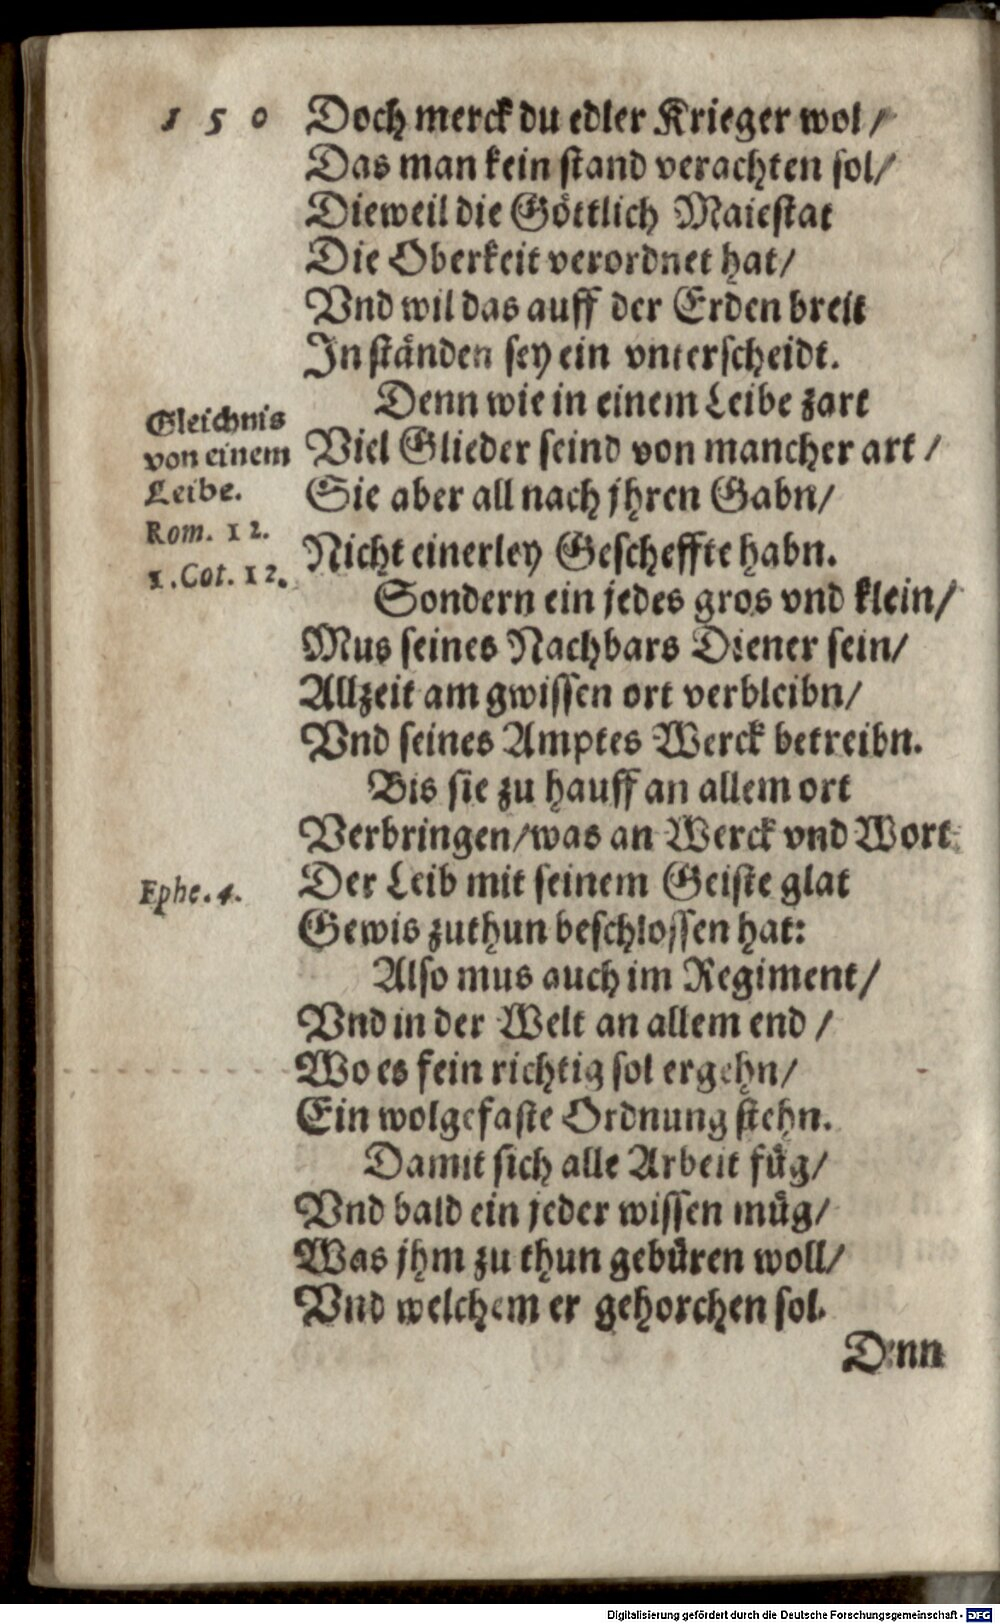 150
Doch merck du edler Krieger wol /
Das man kein stand verachten sol/
Dieweil die Göttlich Maiestat
Die Oberkeit verordnet hat/
Vnd wil das auff der Erden breit
In ständen sey ein vnterscheidt.
Denn wie in einem Leibe zart
Viel Glieder seind von mancher art /
Sie aber all nach jhren Gabn/
Nicht einerley Gescheffte habn.
Gleichnis
von einem
Leibe.
Rom. 12.
1.Cot. 12.
Sondern ein jedes gros vnd klein/
Mus seines Nachbars Diener sein/
Allzeit am gwissen ort verbleibn/
Vnd seines Amptes Werck betreibn.
Bis sie zu hauff an allem ort
Verbringen/was an Werck vnd Wort
Der Leib mit seinem Geiste glat
Ephe. 4.
Gewis zuthun beschlossen hat:
Also mus auch im Regiment/
Vnd in der Welt an allem end /
Wo es fein richtig sol ergehn/
Ein wolgefaste Ordnung stehn.
Damit sich alle Arbeit füg/
Vnd bald ein jeder wissen müg/
Was jhm zu thun gebüren woll/
Vnd welchem er gehorchen sol.
Denn
Digitalisierung gefördert durch die Deutsche Forschungsgemeinschaft - DFG